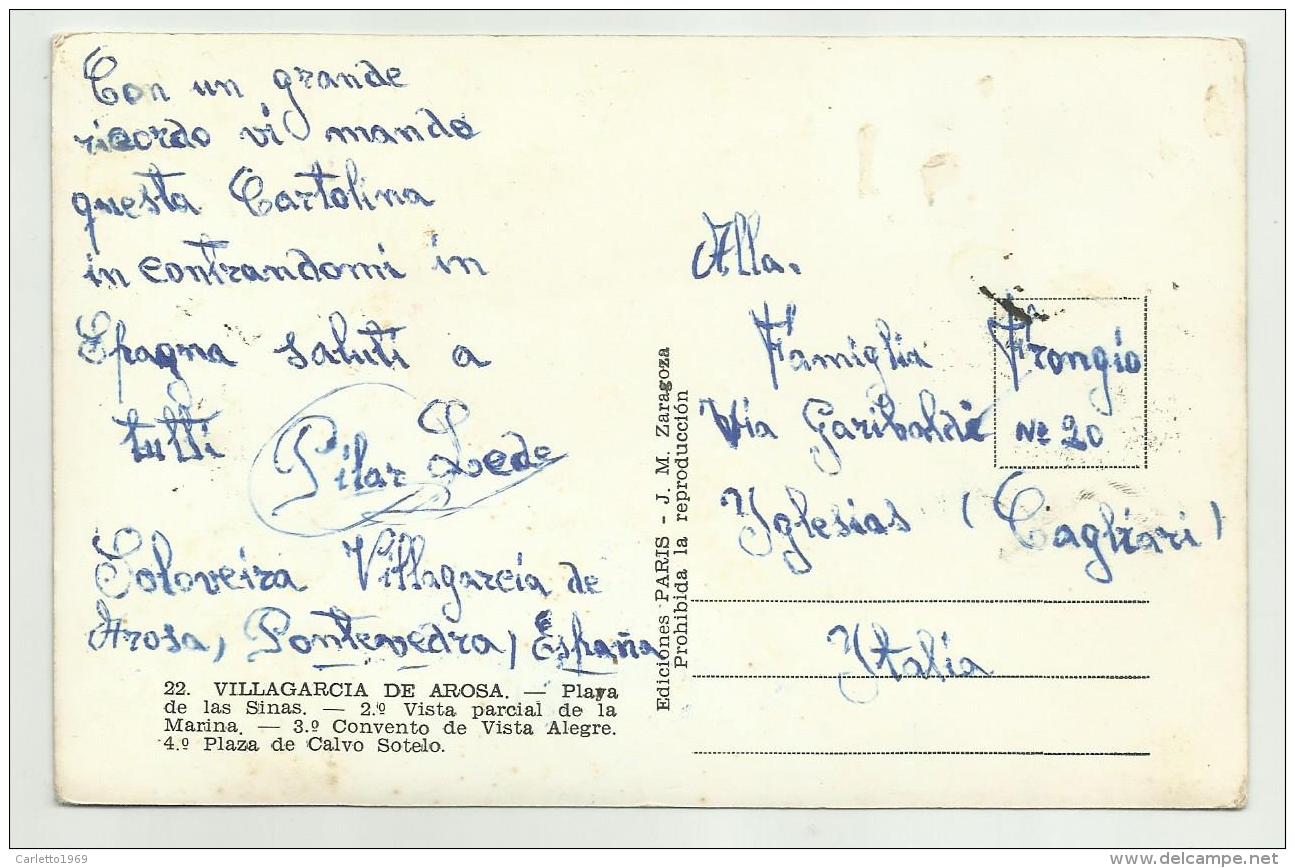 Con un grande
ricordo vi mando
questa Cartolina
in contrandomi in
Epagna saluti a
tutti
Pilar Lede
Soloveira Villagarcia de
Arosa, Pontevedra, España
22. VILLAGARCIA DE AROSA. — Playa
de las Sinas. — 2.º Vista parcial de la
Marina. — 3.º Convento de Vista Alegre.
4.º Plaza de Calvo Sotelo.
Ediciones PARIS - J. M. Zaragoza
Prohibida la reproducción
Alla.
Famiglia Frongio
Via Garibaldi Nº 20
Yglesias (Cagliari)
Ytalia
Carletto1969
www.delcampe.net